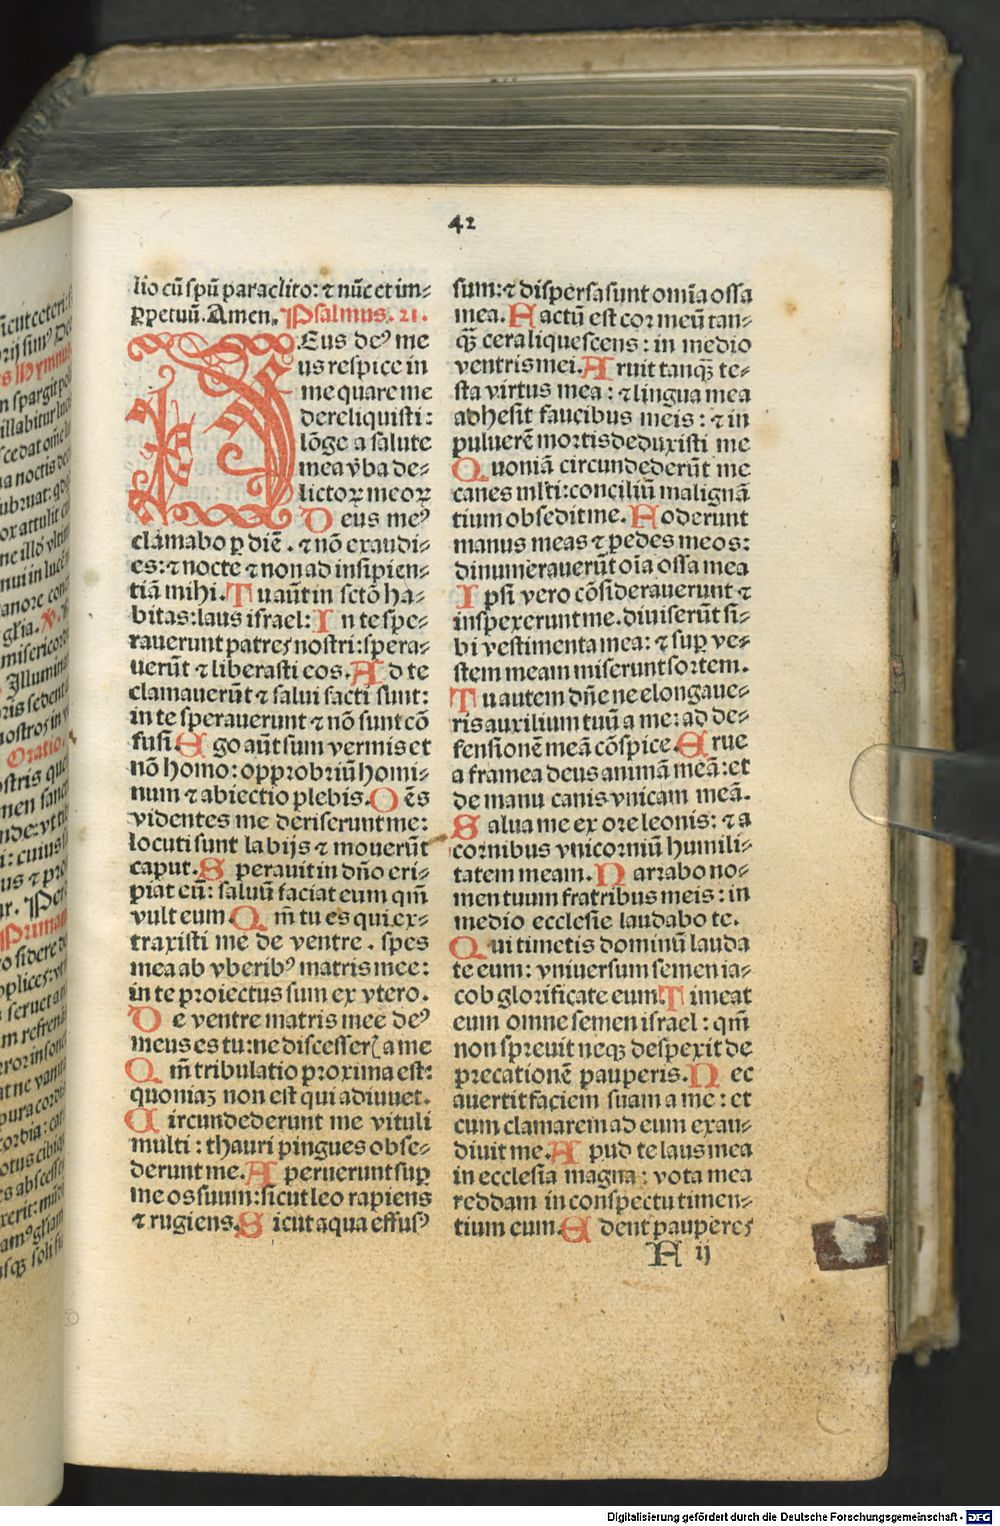 42
lio cū spū paraclito: ⁊ nūc et im⸗
ꝑpetuū. Amen. Psalmus. 21.
DEus deꝰ me
us respice in
me quare me
dereliquisti:
lōge a salute
mea v̄ba de⸗
lictoꝝ meoꝝ
Deus meꝰ
clamabo ꝑ diē. ⁊ nō exaudi⸗
es: ⁊ nocte ⁊ non ad insipien⸗
tiā mihi. Tu aūt in sctō ha⸗
bitas: laus israel: In te spe⸗
rauerunt patres nostri: spera⸗
uerūt ⁊ liberasti eos. Ad te
clamauerūt ⁊ salui facti sunt:
in te sperauerunt ⁊ nō sunt cō
fusi. Ego aūt sum vermis et
nō homo: opprobriū homi⸗
num ⁊ abiectio plebis. Oēs
videntes me deriserunt me:
locuti sunt labijs ⁊ mouerūt
caput. Sperauit in dño eri⸗
piat eū: saluū faciat eum qm̄
vult eum. Qm̄ tu es qui ex⸗
traxisti me de ventre. spes
mea ab vberibꝰ matris mee:
in te proiectus sum ex vtero.
De ventre matris mee deꝰ
meus es tu: ne discesser̄ a me
Qm̄ tribulatio proxima est:
quoniaꝫ non est qui adiuuet.
Circundederunt me vituli
multi: thauri pingues obse⸗
derunt me. Aperuerunt suꝑ
me os suum: sicut leo rapiens
⁊ rugiens. Sicut aqua effusꝰ
sum: ⁊ dispersa sunt omīa ossa
mea. Factū est cor meū tan⸗
qꝫ cera liquescens: in medio
ventris mei. Aruit tanqꝫ te⸗
sta virtus mea: ⁊ lingua mea
adhesit faucibus meis: ⁊ in
puluerē mortis deduxisti me
Quoniā circundederūt me
canes mlti: conciliū malignā
tium obsedit me. Foderunt
manus meas ⁊ pedes meos:
dinumerauerūt oīa ossa mea
Ipsi vero cōsiderauerunt ⁊
inspexerunt me. diuiserūt si⸗
bi vestimenta mea: ⁊ suꝑ ve⸗
stem meam miserunt sortem.
Tu autem dn̄e ne elongaue⸗
ris auxilium tuū a me: ad de⸗
fensionē meā cōspice. Erue
a framea deus animā meā: et
de manu canis vnicam meā.
Salua me ex ore leonis: ⁊ a
cornibus vnicorniū humili⸗
tatem meam. Narrabo no⸗
men tuum fratribus meis: in
medio ecclesie laudabo te.
Qui timetis dominū lauda
te eum: vniuersum semen ia⸗
cob glorificate eum. Timeat
eum omne semen israel: qm̄
non spreuit neqꝫ despexit de
precationē pauperis. Nec
auertit faciem suam a me: et
cum clamarem ad eum exau⸗
diuit me. Apud te laus mea
in ecclesia magna: vota mea
reddam in conspectu timen⸗
tium eum. Edent pauperes
F ij
Digitalisierung gefördert durch die Deutsche Forschungsgemeinschaft - DFG